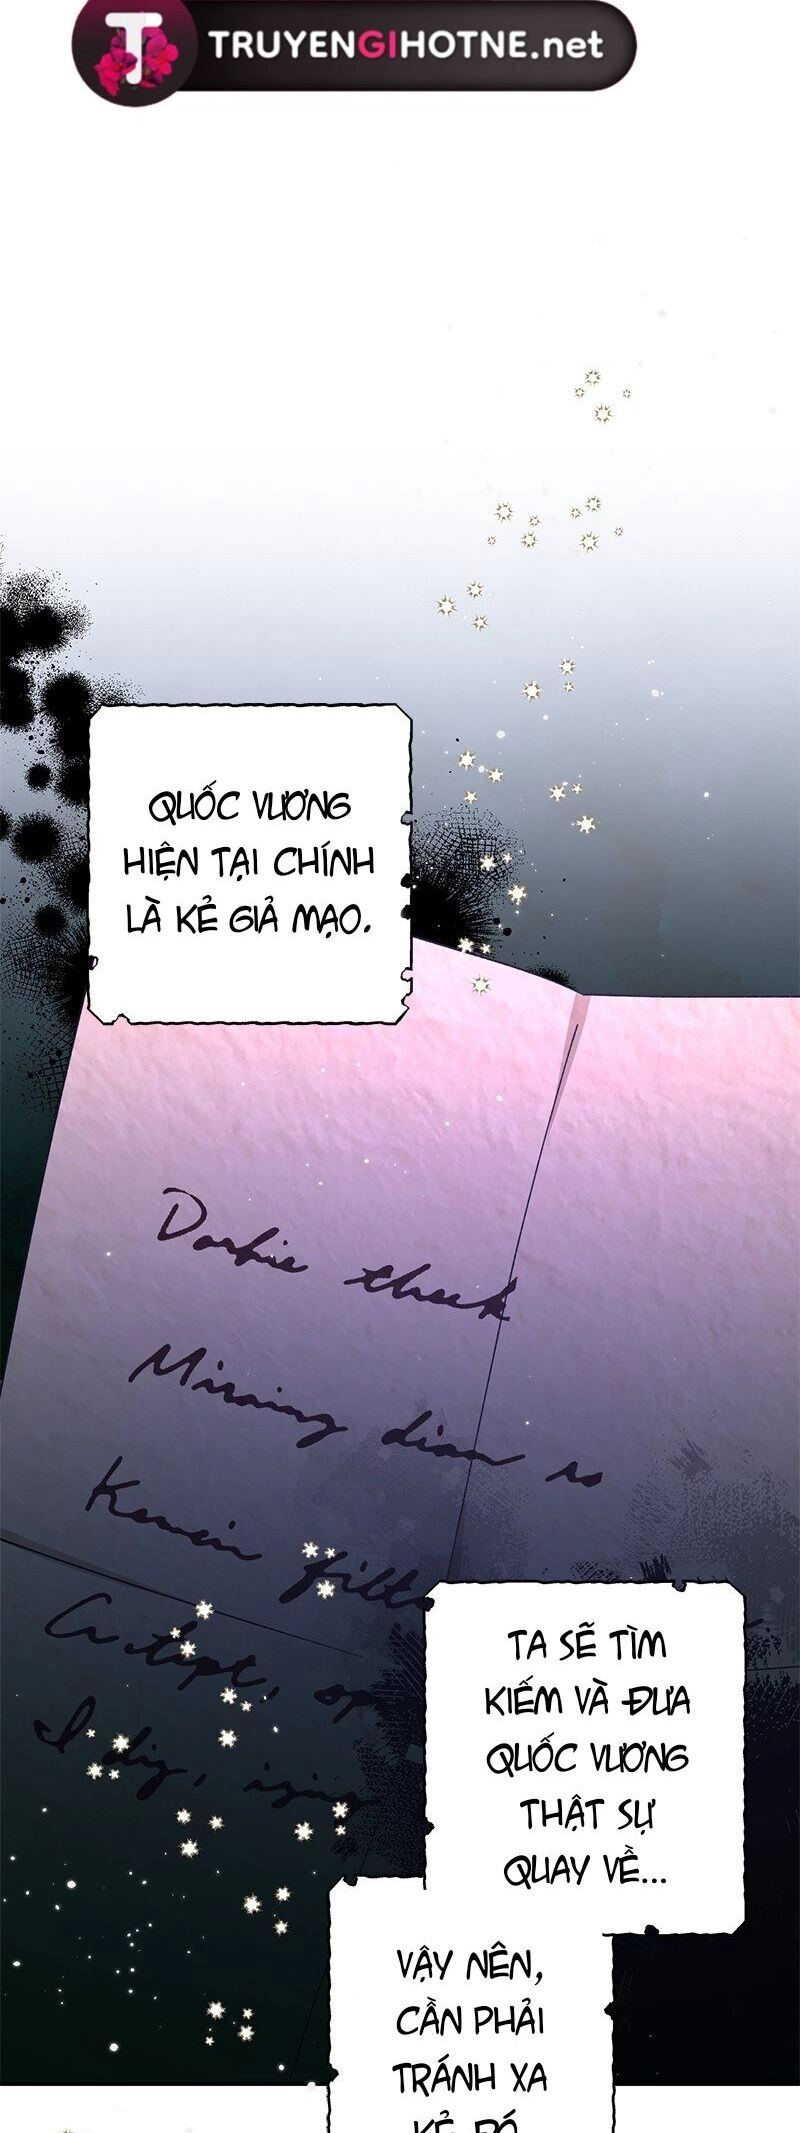 TRUYENGIHOTNE.net
QUỐC VƯƠNG
HIỆN TẠI CHÍNH
LÀ KẺ GIẢ MẠO.
Missing dian
I dig,
TA SẼ TÌM
KIẾM VÀ ĐƯA
QUỐC VƯƠNG
THẬT SỰ
QUAY VỀ...
VẬY NÊN,
CẦN PHẢI
TRÁNH XA
KẺ ĐÓ